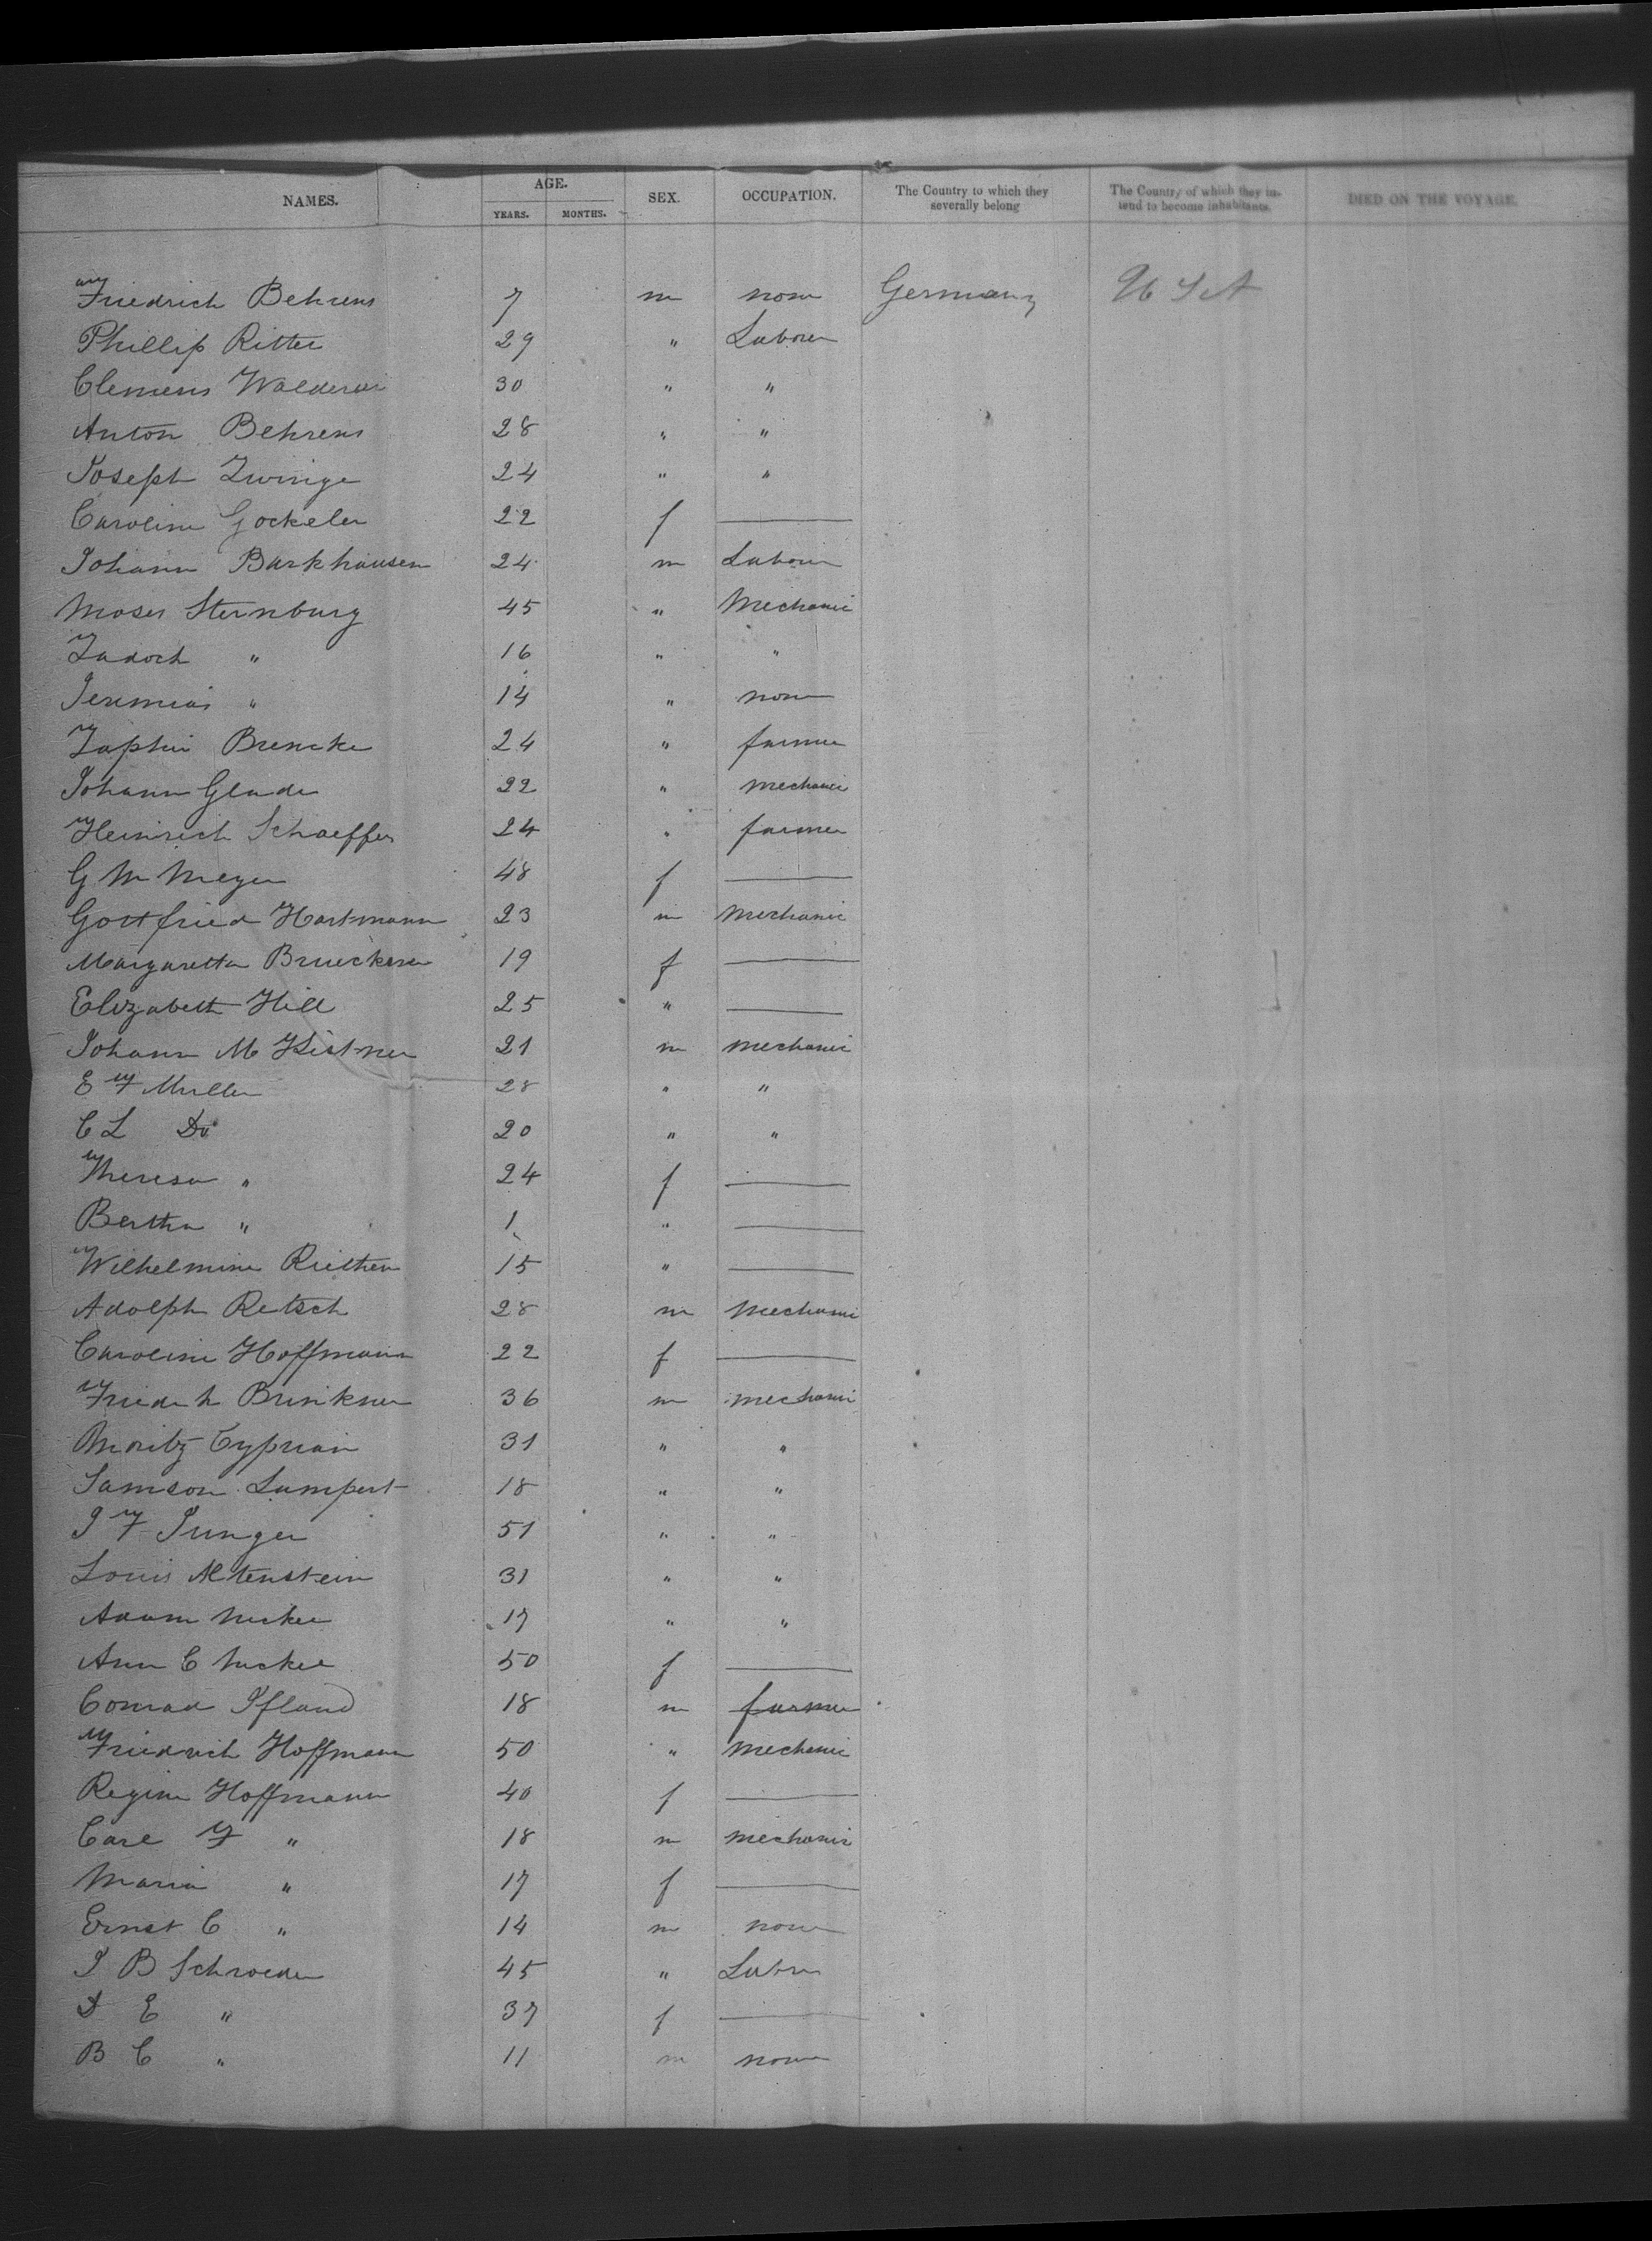 NAMES. AGE. SEX. OCCUPATION. The Country to which they severally belong The Country of which they intend to become inhabitants. DIED ON THE VOYAGE.
YEARS. MONTHS.
Friedrich Behrens 7 m none Germany U S A
Phillip Ritter 29 " Laborer
Clemens 30 " "
Anton Behrens 28 " "
Joseph Zwinge 24 " "
Caroline Gockeler 22 f —
Johann Barkhausen 24 m Laborer
Moses Sternburg 45 " Mechanic
Zadoch " 16 " "
Jeremias " 14 " none
Brencke 24 " farmer
Johann Glade 22 " mechanic
Heinrich Schaeffer 24 " farmer
G M Meyer 48 f —
Gottfried Hartmann 23 m Mechanic
Margaretta Brueckner 19 f —
Elizabeth Hill 25 " —
Johann M Kistner 21 m mechanic
E F Muller 28 " "
C L Do 20 " "
Theresa " 24 f —
Bertha " 1 " —
Wilhelmine Riethen 15 " —
Adolph Retsch 28 m Mechanic
Caroline Hoffmann 22 f —
Friedch Brinkner 36 m mechanic
Moritz Cyprian 31 " "
Samson Lampert 18 " "
J F Junger 51 " "
Louis Altenstein 31 " "
Adam 17 " "
Ann C 50 f —
Conrad Ifland 18 m farmer
Friedrich Hoffmann 50 " Mechanic
Regine Hoffmann 40 f —
Carl F " 18 m mechanic
Maria " 17 f —
Ernst C " 14 m none
J B Schroeder 45 " Labrer
D E " 37 f —
B C " 11 m none